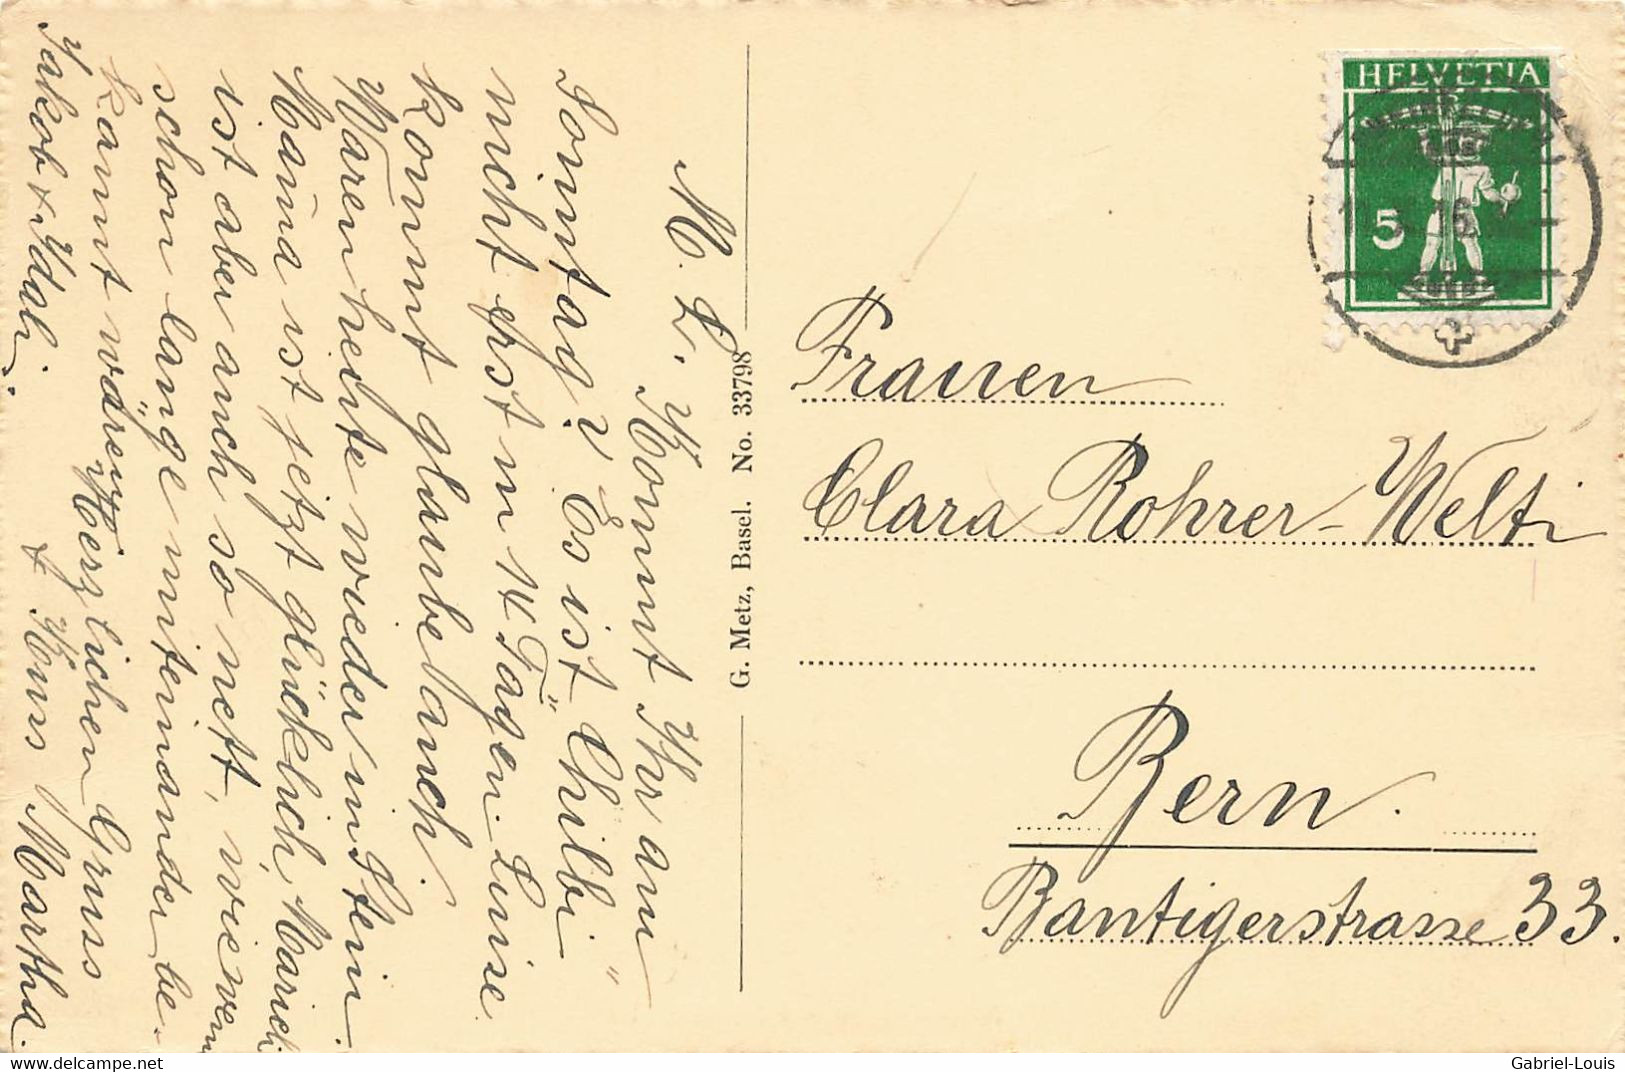 M. L. Kommt Ihr am
Sonntag? Es ist "Chilbi"
nicht erst in 14 Tagen. Luise
kommt glaube auch.
Waren heute wieder in Stein.
Mama ist jetzt glücklich, Marieli
ist aber auch so nett, wie wenn
schon lange miteinander be-
kannt wären. Herzlichen Gruss
Jakob & Idali. & Hans Martha.
G. Metz, Basel. No. 33798
HELVETIA
5
Frauen
Clara Rohrer-Welti
Bern.
Bantigerstrasse 33.
delcampe.net
Gabriel-Louis